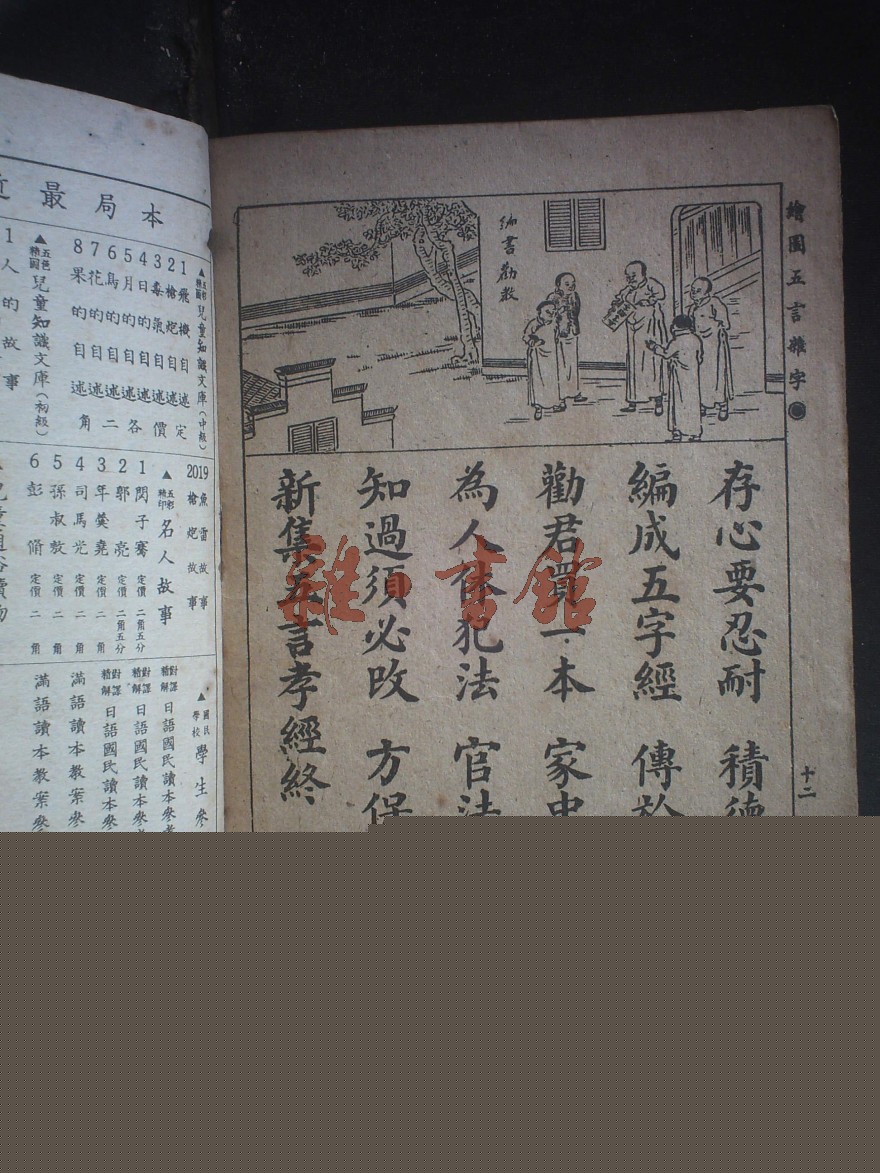 繪圖五言雜字
十二
編書勸教
存心要忍耐 積德
編成五字經 傳於
勸君買一本 家中
為人休犯法 官法
知過須必改 方保
新集五言孝經終
雜·書館
本局最近
▲五彩精圖兒童知識文庫(中級)
1飛機自述
2槍炮自述
3毒氣自述
4日的自述
5月的自述
6鳥的自述
7花的自述
8果的自述
定價各二角
▲五色精圖兒童知識文庫(初級)
1人的故事
19魚雷故事
20槍炮故事
▲五彩精印名人故事
1閔子騫 定價二角五分
2郭亮 定價二角五分
3年羹堯 定價二角
4司馬光 定價二角
5孫叔敖 定價二角
6彭脩 定價二角
▲國民學校學生參
對譯精解日語國民讀本參
對譯精解日語國民讀本參
對譯精解日語國民讀本參
滿語讀本教案參
滿語讀本教案參